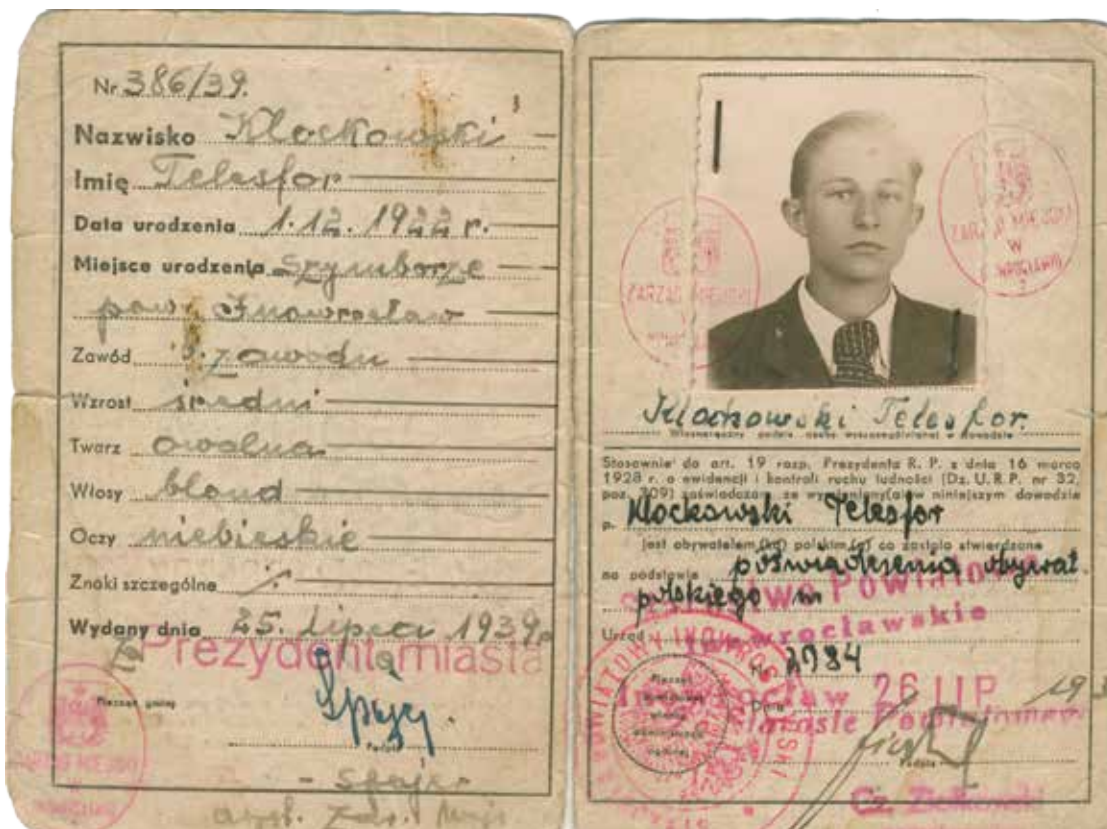 Nr 386/39.
Nazwisko Kłockowski
Imię Telesfor
Data urodzenia 1.12.1922 r.
Miejsce urodzenia Szymborze
pow. Inowrocław
Zawód b. zawodu
Wzrost średni
Twarz owalna
Włosy blond
Oczy niebieskie
Znaki szczególne ./.
Wydany dnia 25. lipca 1939 r.
Prezydent miasta
Pieczęć gminy
Podpis
ZARZĄD MIEJSKI
ZARZĄD MIEJSKI
W
INOWROCŁAWIU
ZARZĄD MIEJSKI
Kłockowski Telesfor.
Własnoręczny podpis osoby wyszczególnionej w dowodzie
Stosownie do art. 19 rozp. Prezydenta R. P. z dnia 16 marca
1928 r. o ewidencji i kontroli ruchu ludności (Dz. U. R. P. nr 32,
poz. 309) zaświadczam, że wymieniony(a) w niniejszym dowodzie
p. Kłockowski Telesfor
jest obywatelem(ką) polskim(ą) co zostało stwierdzone
na podstawie poświadczenia obywat.
polskiego
Starostwo Powiatowe
Urząd Inowrocławskie
Nr 2984
Inowrocław 26 LIP. 193
Dnia
Podpis